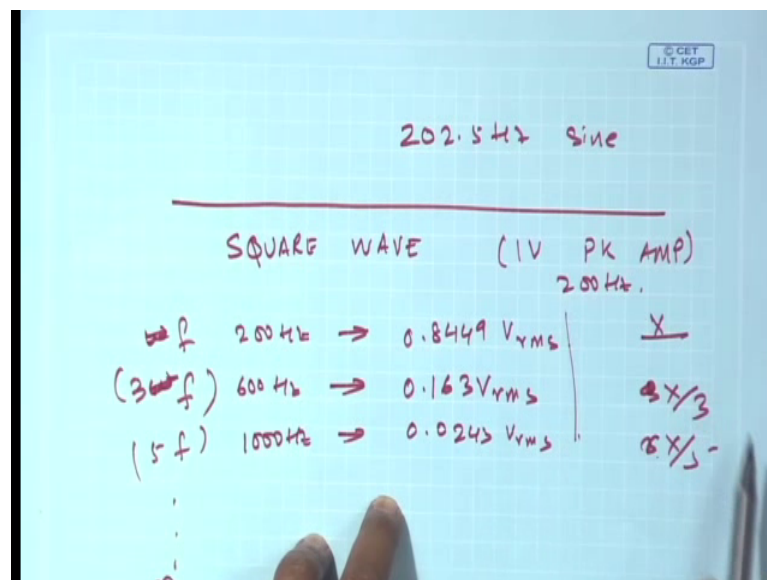 © CET
I.I.T. KGP
202.5 Hz Sine
SQUARE WAVE (1V PK AMP)
200 Hz.
f 200 Hz → 0.8449 Vrms X
(3f) 600 Hz → 0.163 Vrms X/3
(5f) 1000 Hz → 0.0243 Vrms X/5